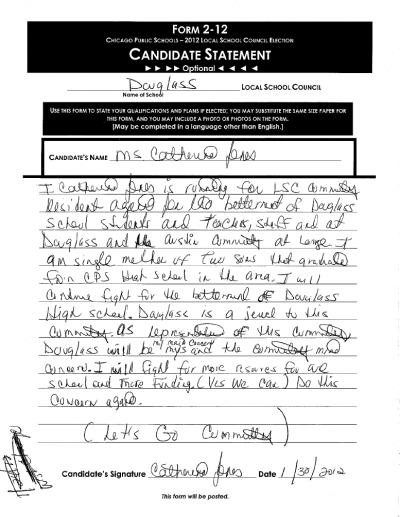 FORM 2-12
CHICAGO PUBLIC SCHOOLS – 2012 LOCAL SCHOOL COUNCIL ELECTION
CANDIDATE STATEMENT
► ► ► ► Optional ◄ ◄ ◄ ◄
Douglass LOCAL SCHOOL COUNCIL
Name of School
USE THIS FORM TO STATE YOUR QUALIFICATIONS AND PLANS IF ELECTED; YOU MAY SUBSTITUTE THE SAME SIZE PAPER FOR
THIS FORM, AND YOU MAY INCLUDE A PHOTO OR PHOTOS ON THE FORM.
[May be completed in a language other than English.]
CANDIDATE'S NAME Ms. Catherine Jones
I Catherine Jones is running for LSC Community
Resident again for the betterment of Douglass
School students and Teachers, staff and at
Douglass and the Austin Community at large. I
am single mother of two sons that graduate
from CPS high school in the area. I will
continue fight for the betterment of Douglass
High school. Douglass is a jewel to this
Community. As of this Community
Douglass will be my major concern and the community
concern. I will fight for more for are
school and more funding. (Yes We Can) Do this
Concern again.
(Let's Go Community)
Candidate's Signature Catherine Jones Date 1/30/2012
This form will be posted.